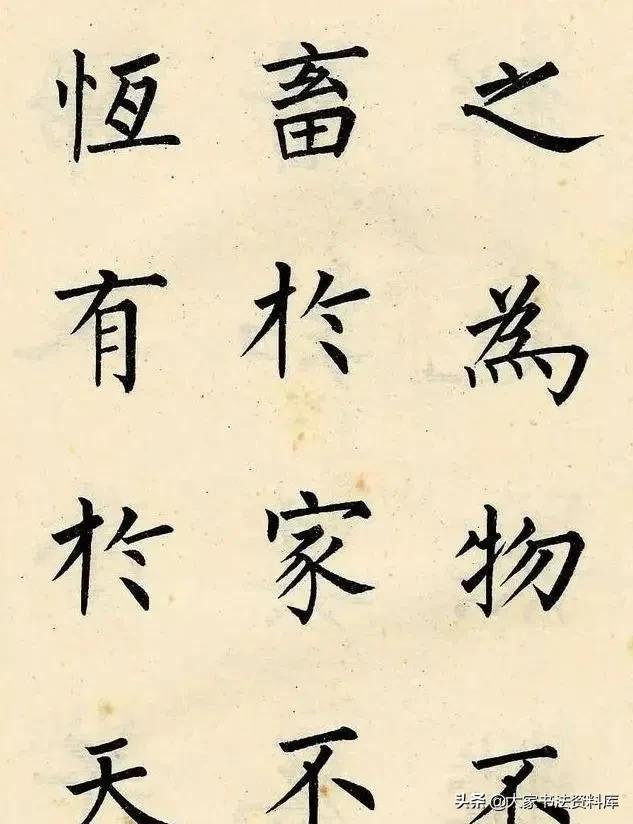 之為物不
畜於家不
恆有於天
头条 @大家书法资料库